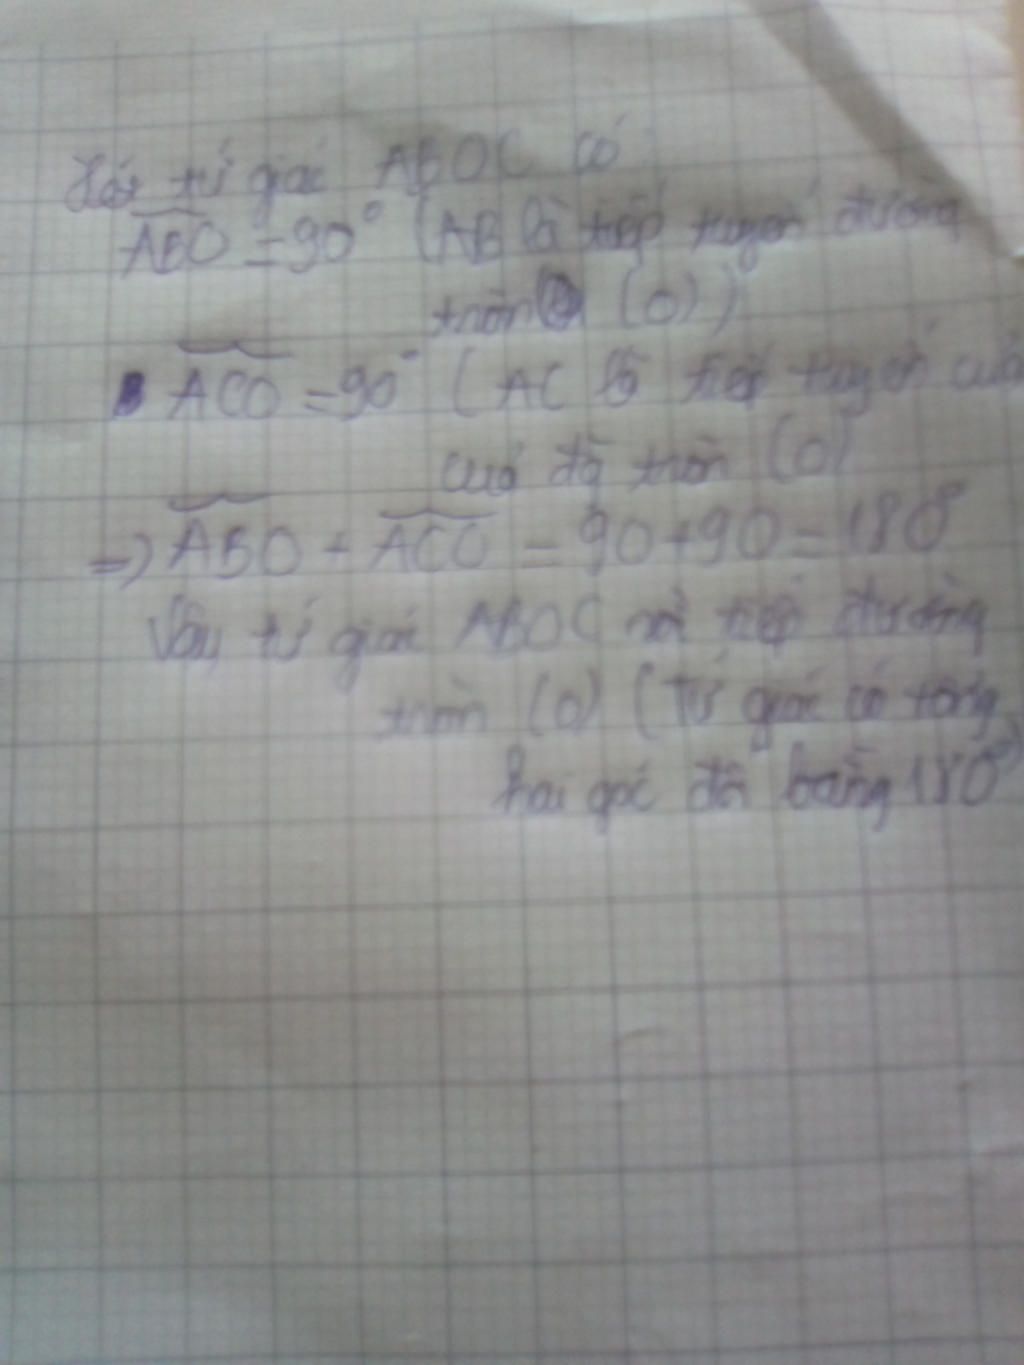 Xét tứ giác ABOC có
ABO = 90° (AB là tiếp tuyến đường
tròn (O))
ACO = 90° (AC là tiếp tuyến của
của đg tròn (O)
=> ABO + ACO = 90+90=180°
Vậy tứ giác ABOC nội tiếp đường
tròn (O) (Tứ giác có tổng
hai góc đối bằng 180°)